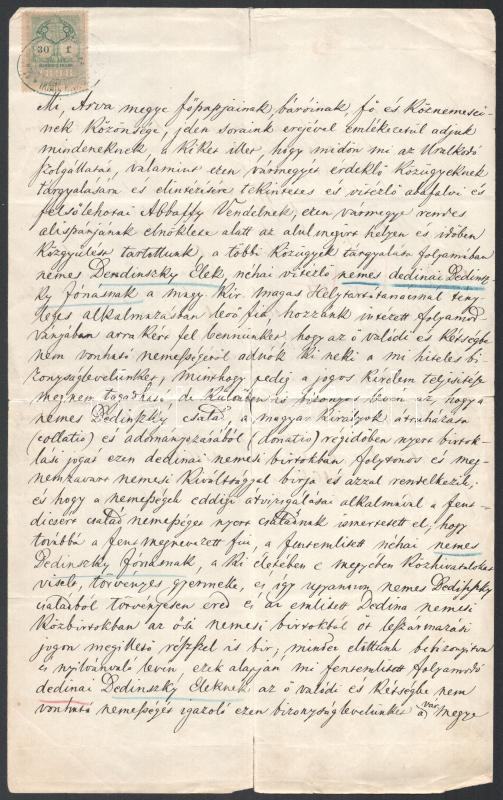 30 f
1898
Mi, Árva megye főpapjainak, báróinak, fő és köznemesei-
nek közönsége, jelen soraink erejével emlékezetül adjuk
mindeneknek a kiket illet, hogy midőn mi az Uralkodó
szolgálltatás, valamint ezen vármegyét érdeklő közügyeknek
tárgyalására és elintézésére tekintetes és vitézlő abafalvi és
felsőlehotai Abbaffy Vendelnek, ezen vármegye rendes
alispánjának elnöklete alatt az alulmegirt helyen és időben
közgyülést tartottunk, a többi közügyek tárgyalása folyamában
nemes Dedinszky Elek néhai vitézlő nemes dedinai Dedinsz-
ky Jónásnak a magy. kir. magas Helytartótanácsnál tény-
leges alkalmazásban levő fia, hozzánk intézett folyamod-
ványában arra kért fel bennünket hogy az ő valódi és kétségbe
nem vonható nemességéről adnók ki neki a mi hiteles bi-
zonyságlevelünket, minthogy pedig a jogos kérelem teljesitését
megnem tagadható de különben is bizonyos lévén az, hogy a
nemes Dedinszky család, a magyar királyok átruházása
(collatio) és adományozásából (donatio) régidőben nyert birtok-
lási jogát ezen dedinai nemesi birtokban folytonos és meg-
nemzavart nemesi kiváltsággal birja és azzal rendelkezik,
és hogy a nemességek eddigi átvizsgálásai alkalmával a fent-
dicsért család nemességet nyert családnak ismertetett el, hogy
továbbá a fentmegnevezett fiú, a fentemlitett néhai nemes
Dedinszky Jónásnak, a ki életében e megyében közhivatalokat
viselt, törvényes gyermeke, és így ugyanazon nemes Dedinszky
családból törvényesen ered és az emlitett Dedina nemesi
közbirtokban az ősi nemesi birtokból őt leszármazási
jogon megillető részszel is bir; mindez előttünk bebizonyitva
és nyilvánvaló lévén, ezek alapján mi fentemlitett folyamodó
dedinai Dedinszky Eleknek az ő valódi és kétségbe nem
vonható nemességét igazoló ezen bizonyságlevelünket a vármegye